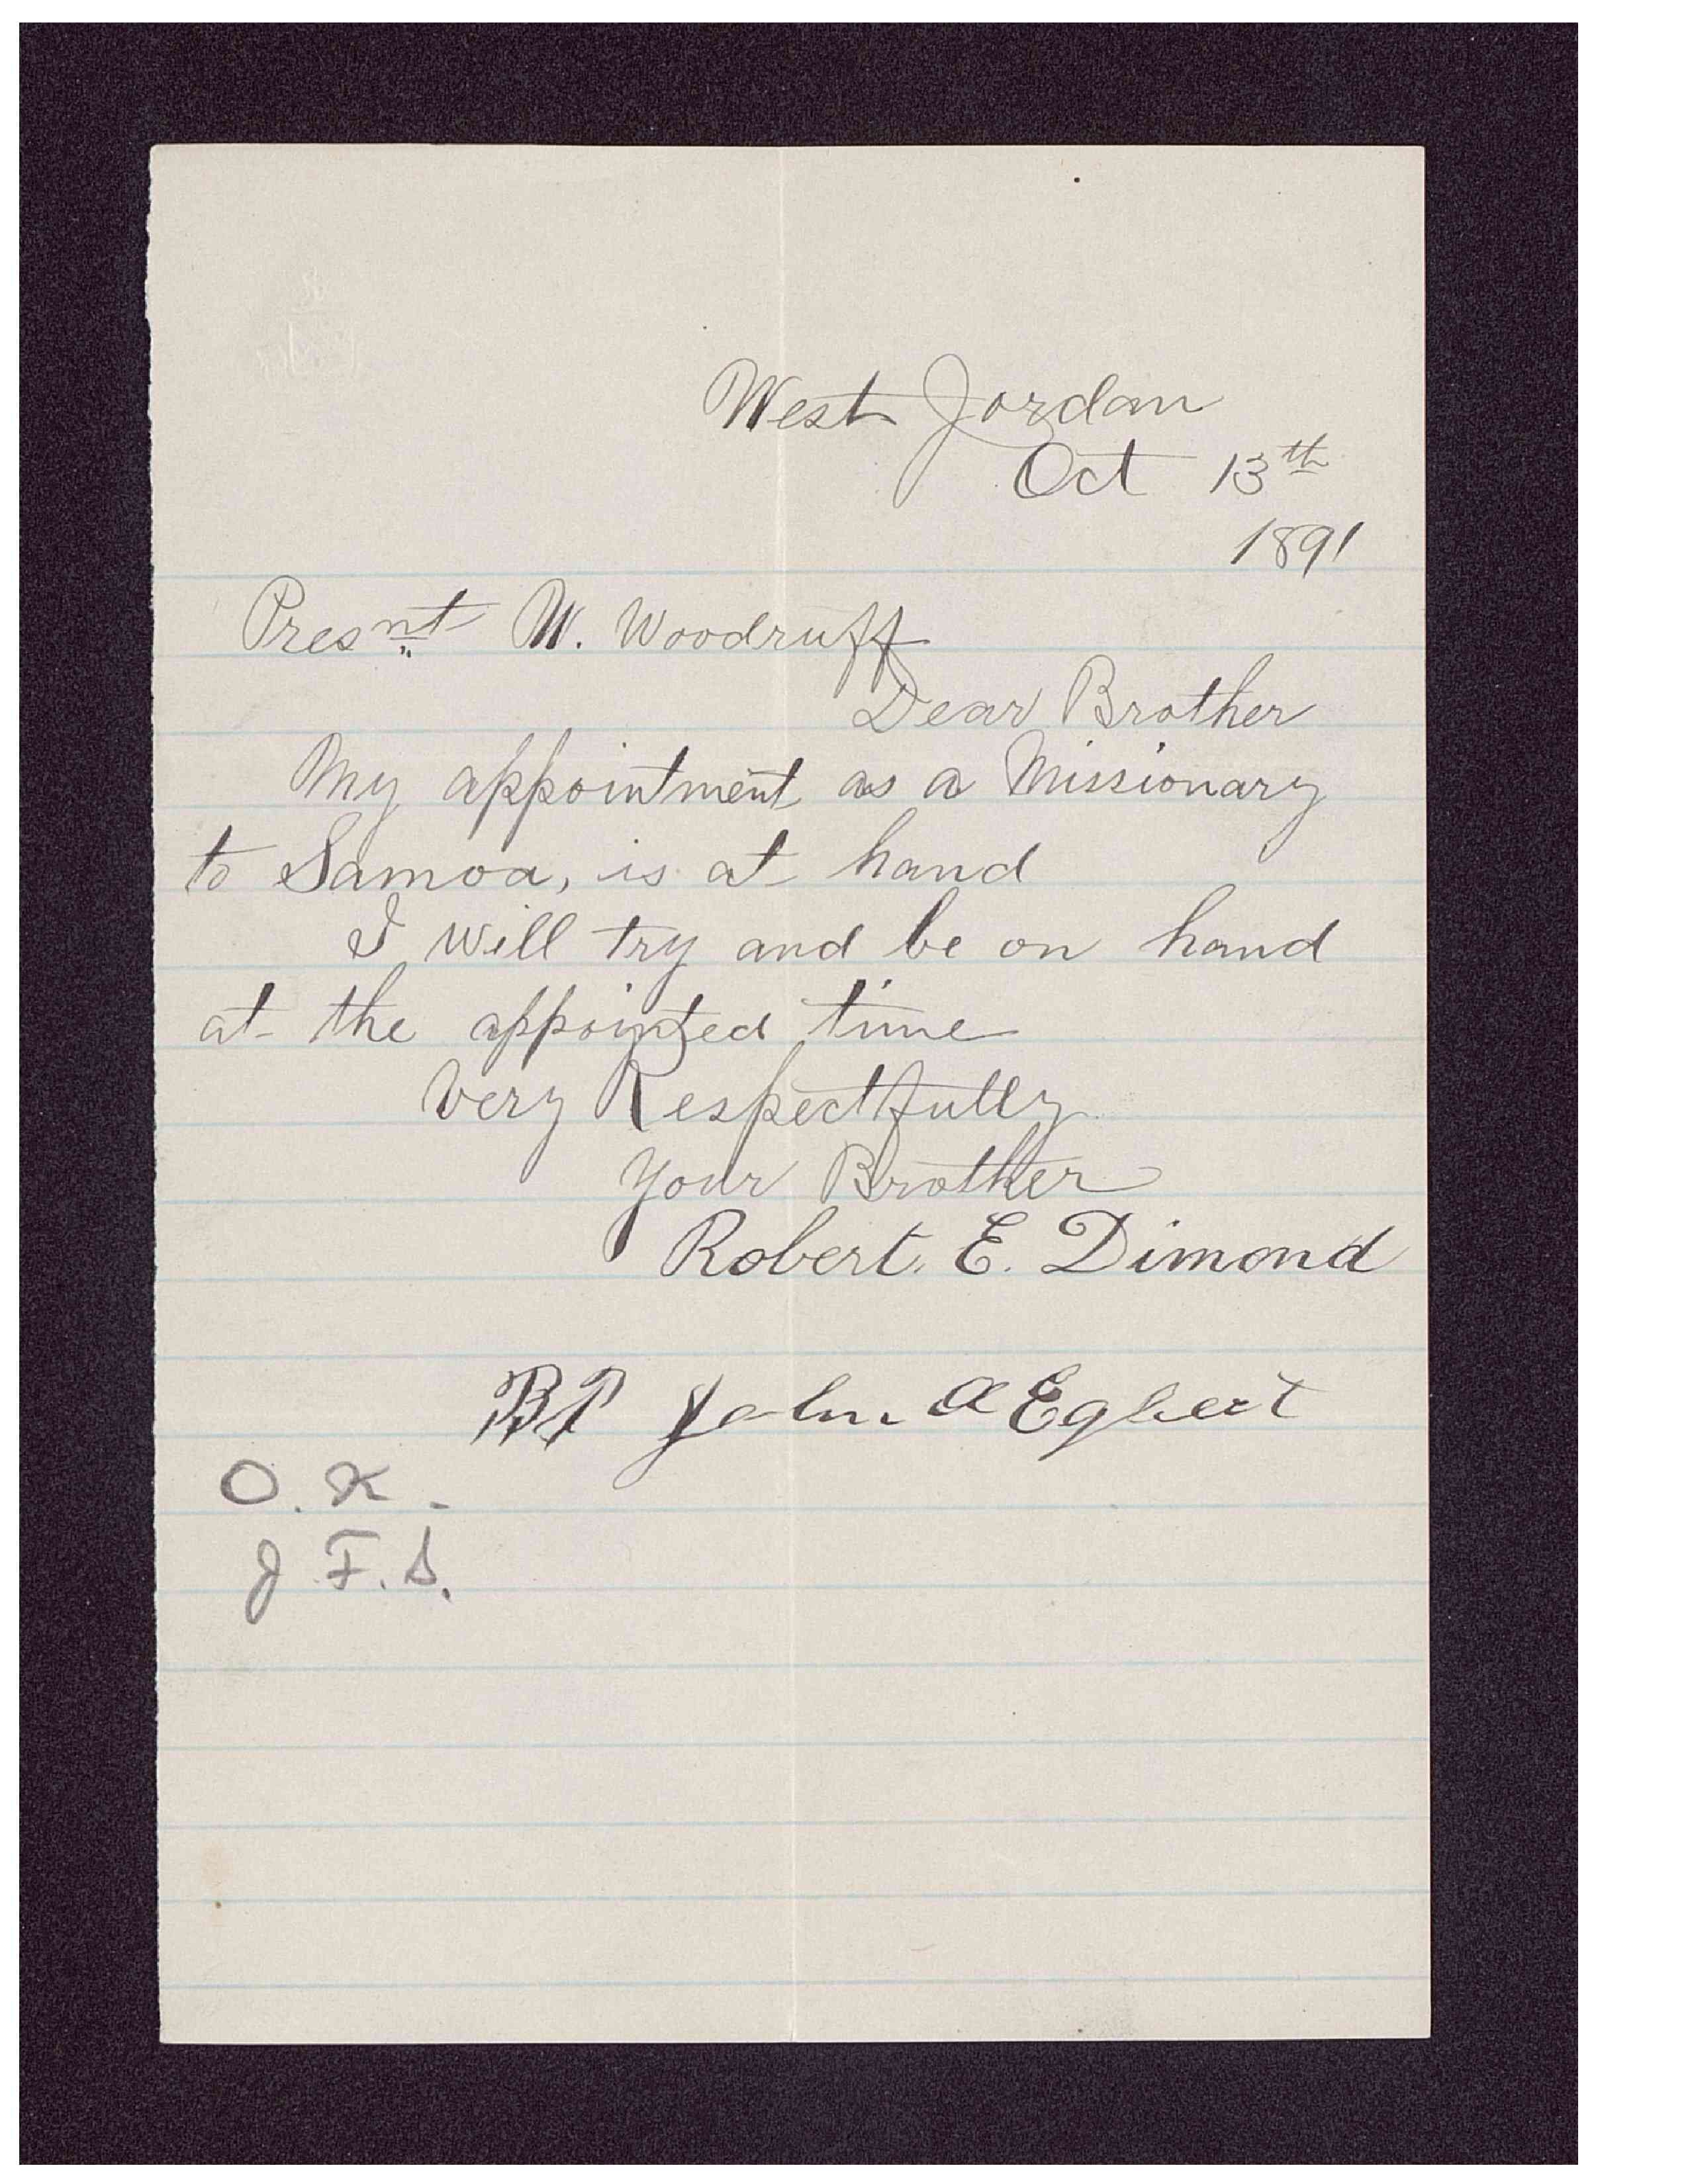 West Jordan
Oct 13th
1891
Presnt W. Woodruff
Dear Brother
My appointment as a Missionary
to Samoa, is at hand
I will try and be on hand
at the appointed time
Very Respectfully
Your Brother
Robert. E. Dimond
BP John A Egbert
O. K.
J. F. S.